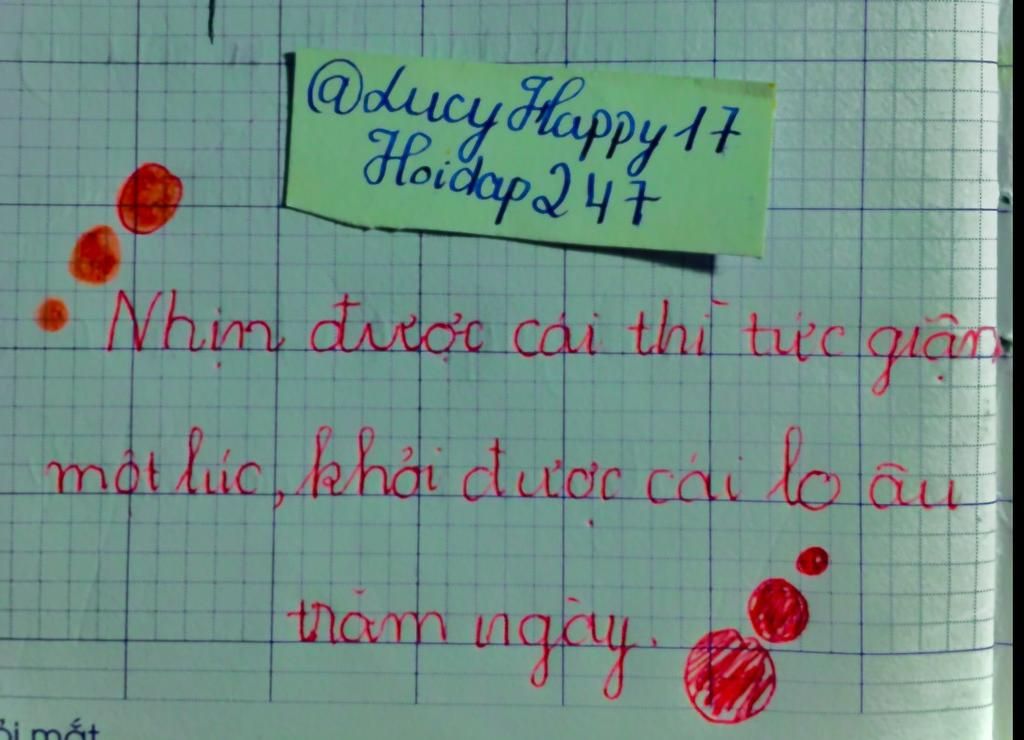 @LucyHappy17
Hoidap247
Nhịn được cái thì tức giận
một lúc, khỏi được cái lo âu
trăm ngày.
ỏi mắt